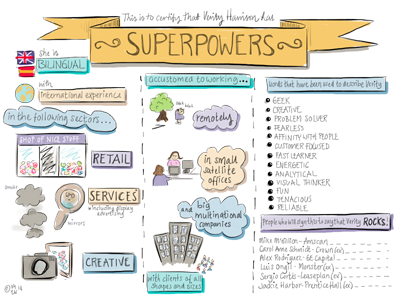 This is to certify that Verity Harrison has
SUPERPOWERS
she is
BILINGUAL
with
international experience
in the following sectors...
SHOP OF NICE STUFF
RETAIL
smoke
SERVICES
• including display
advertising
mirrors
CREATIVE
accustomed to working...
blah blah
remotely
in small
satellite
offices
and big
multinational
companies
with clients of all
shapes and sizes
Words that have been used to describe Verity
GEEK
CREATIVE
PROBLEM SOLVER
FEARLESS
AFFINITY WITH PEOPLE
CUSTOMER FOCUSED
FAST LEARNER
ENERGETIC
ANALYTICAL
VISUAL THINKER
FUN
TENACIOUS
RELIABLE
People who will sign this to say that Verity ROCKS!
Mike McMillon - Amscan
Carol Anne Schmidt - Crown (ex)
Alex Rodriguez - GE Capital
Luis Ongil - Monster (ex)
Sergio Cortés - Leaseplan (ex)
Jackie Harbor - Prentice Hall (ex)